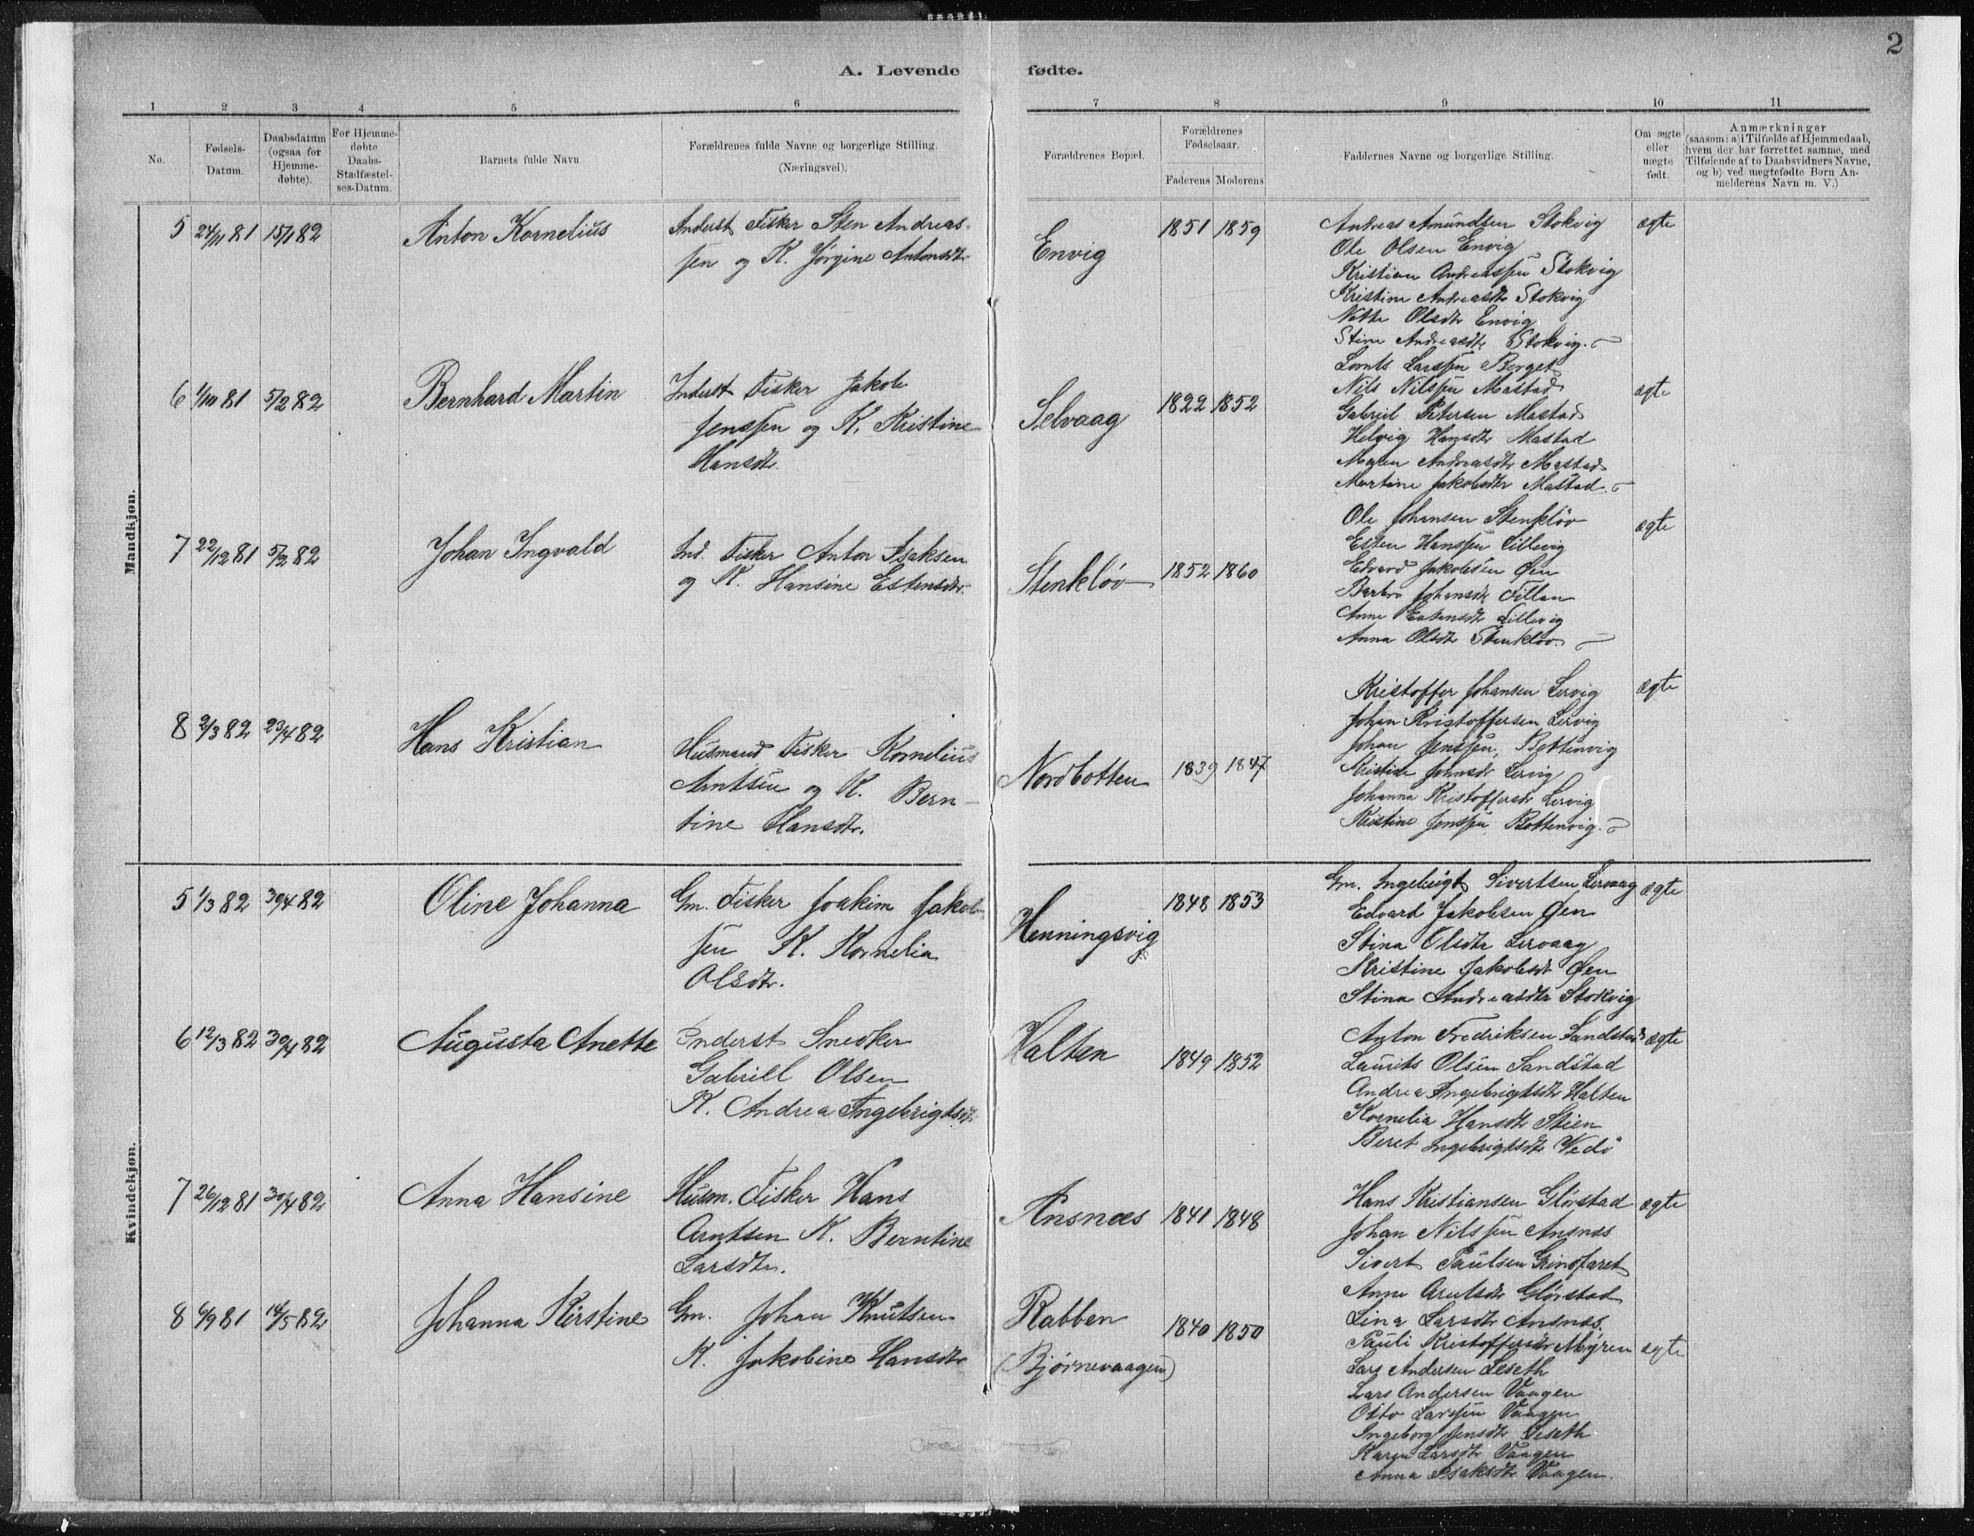 2
A. Levende fødte.
1 2 3 4 5 6 7 8 9 10 11
No.
Fødsels-
Datum.
Daabsdatum
(ogsaa for
Hjemme-
døbte).
For Hjemme-
døbte
Daabs-
Stadfæstel-
ses-Datum.
Barnets fulde Navn
Forældrenes fulde Navne og borgerlige Stilling.
(Næringsvei).
Forældrenes Bopæl.
Forældrenes
Fødselsaar.
Faderens Moderens
Faddernes Navne og borgerlige Stilling.
Om ægte
eller
uægte
født.
Anmærkninger
(saasom: a) i Tilfælde af Hjemmedaab,
hvem der har forrettet samme, med
Tilføiende af to Daabsvidners Navne,
og b) ved uægtefødte Børn An-
melderens Navn m. V.)
Mandkjøn.
5 24/11 81 15/1 82
Anton Kornelius
Inderst Fisker Sten Andreas-
sen og K. Jørgine Antonsdtr
Envig
1851 1859
Andreas Amundsen Stokvig
Ole Olsen Envig
Kristian Andreassen Stokvig
Kristine Andreasdtr Stokvig
Olsdtr Envig
Stine Andreasdtr Stokvig.
ægte
6 1/10 81 5/2 82
Bernhard Martin
Inderst Fisker Jakob
Jenssen og K. Kristine
Hansdtr.
Selvaag
1822 1852
Lornts Larssen Berget
Nils Nilssen Mastad
Gabriel Petersen Mastad
Helvig Hansdtr Mastad
Maren Andreasdtr Mastad
Martine Jakobsdtr Mastad.
ægte
7 22/12 81 5/2 82
Johan Ingvald
Ind. Fisker Anton Isaksen
og K. Hansine Estensdtr.
Stenkløv
1852 1860
Ole Johansen Stenkløv
Esten Hanssen Lillevig
Edvard Jakobsen Øen
Barbro Johansdtr Fillan
Anne Estensdtr Lillevig
Anna Olsdtr Stenkløv.
ægte
8 2/3 82 23/4 82
Hans Kristian
Husmand Fisker Kornelius
Arntsen og K. Bern-
tine Hansdtr.
Nordbotten
1839 1847
Kristoffer Johansen Lervig
Johan Kristoffersen Lervig
Johan Jenssen Bottenvig
Kristine Johnsdr Lervig
Johanna Kristoffersdr Lervig
Kristine Jenssen Bottenvig.
ægte
Kvindekjøn.
5 1/3 82 30/4 82
Oline Johanna
Gm. Fisker Joakim Jakob-
sen K. Kornelia
Olsdtr.
Henningsvig
1848 1853
Gm. Ingebrigt Sivertsen Lervaag
Edvard Jakobsen Øen
Stina Olsdtr Lervaag
Kristine Jakobsdr Øen
Stina Andreasdtr Stokvig
ægte
6 12/3 82 30/4 82
Augusta Anette
Inderst Snedker
Gabriel Olsen
K. Andrea Ingebrigtsdtr.
Halten
1849 1852
Anton Fredriksen Sandstad
Laurits Olsen Sandstad
Andrea Ingebrigtsdtr Halten
Kornelia Hansdtr Stien
Beret Ingebrigtsdtr Vedø
ægte
7 26/12 81 30/4 82
Anna Hansine
Husm. Fisker Hans
Arntsen K. Berntine
Larsdtr.
Ansnæs
1841 1848
Hans Kristiansen Glørstad
Johan Nilssen Ansnæs
Sivert Paulsen Grindfaret
Anne Arntsdr Glørstad
Lina Larsdtr Ansnæs.
ægte
8 6/9 81 14/5 82
Johanna Kirstine
Gm. Johan Knutsen
K. Jakobine Hansdtr
Rabben
(Bjørnevaagen)
1840 1850
Pauli Kristoffersdr Myren
Lars Andersen Leseth
Lars Andersen Vaagen
Otto Larssen Vaagen
Ingeborg Jensdtr Leseth
Karen Larsdtr Vaagen
Anna Isaksdtr Vaagen.
ægte